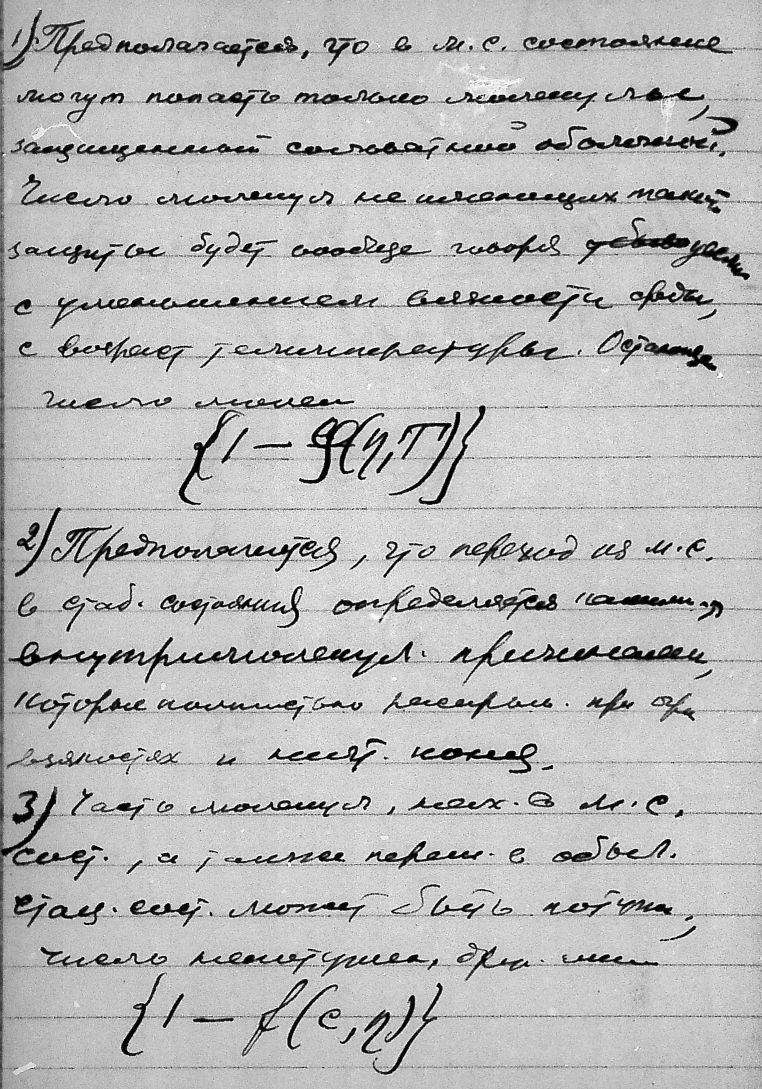 1) Предполагается, что в м.с. состояние
могут попасть только молекулы,
защищенный сольватной оболочкой.
Число молекул не имеющих такой
защиты будет вообще говоря
с уменьшением вязкости среды,
с возраст температуры.
число молек
{1 — φ(η,T)}
2) Предполагается, что переход из м.с.
в стаб. состояния определяется
внутримолекул. причинами,
которые полностью при
вязкостях и конц.
3) Часть молекул, нах. в м.с.
сост., а также переш. в обыч.
стац. сост. может быть потуш.,
число непотушен.
{1 — f(c,η)}